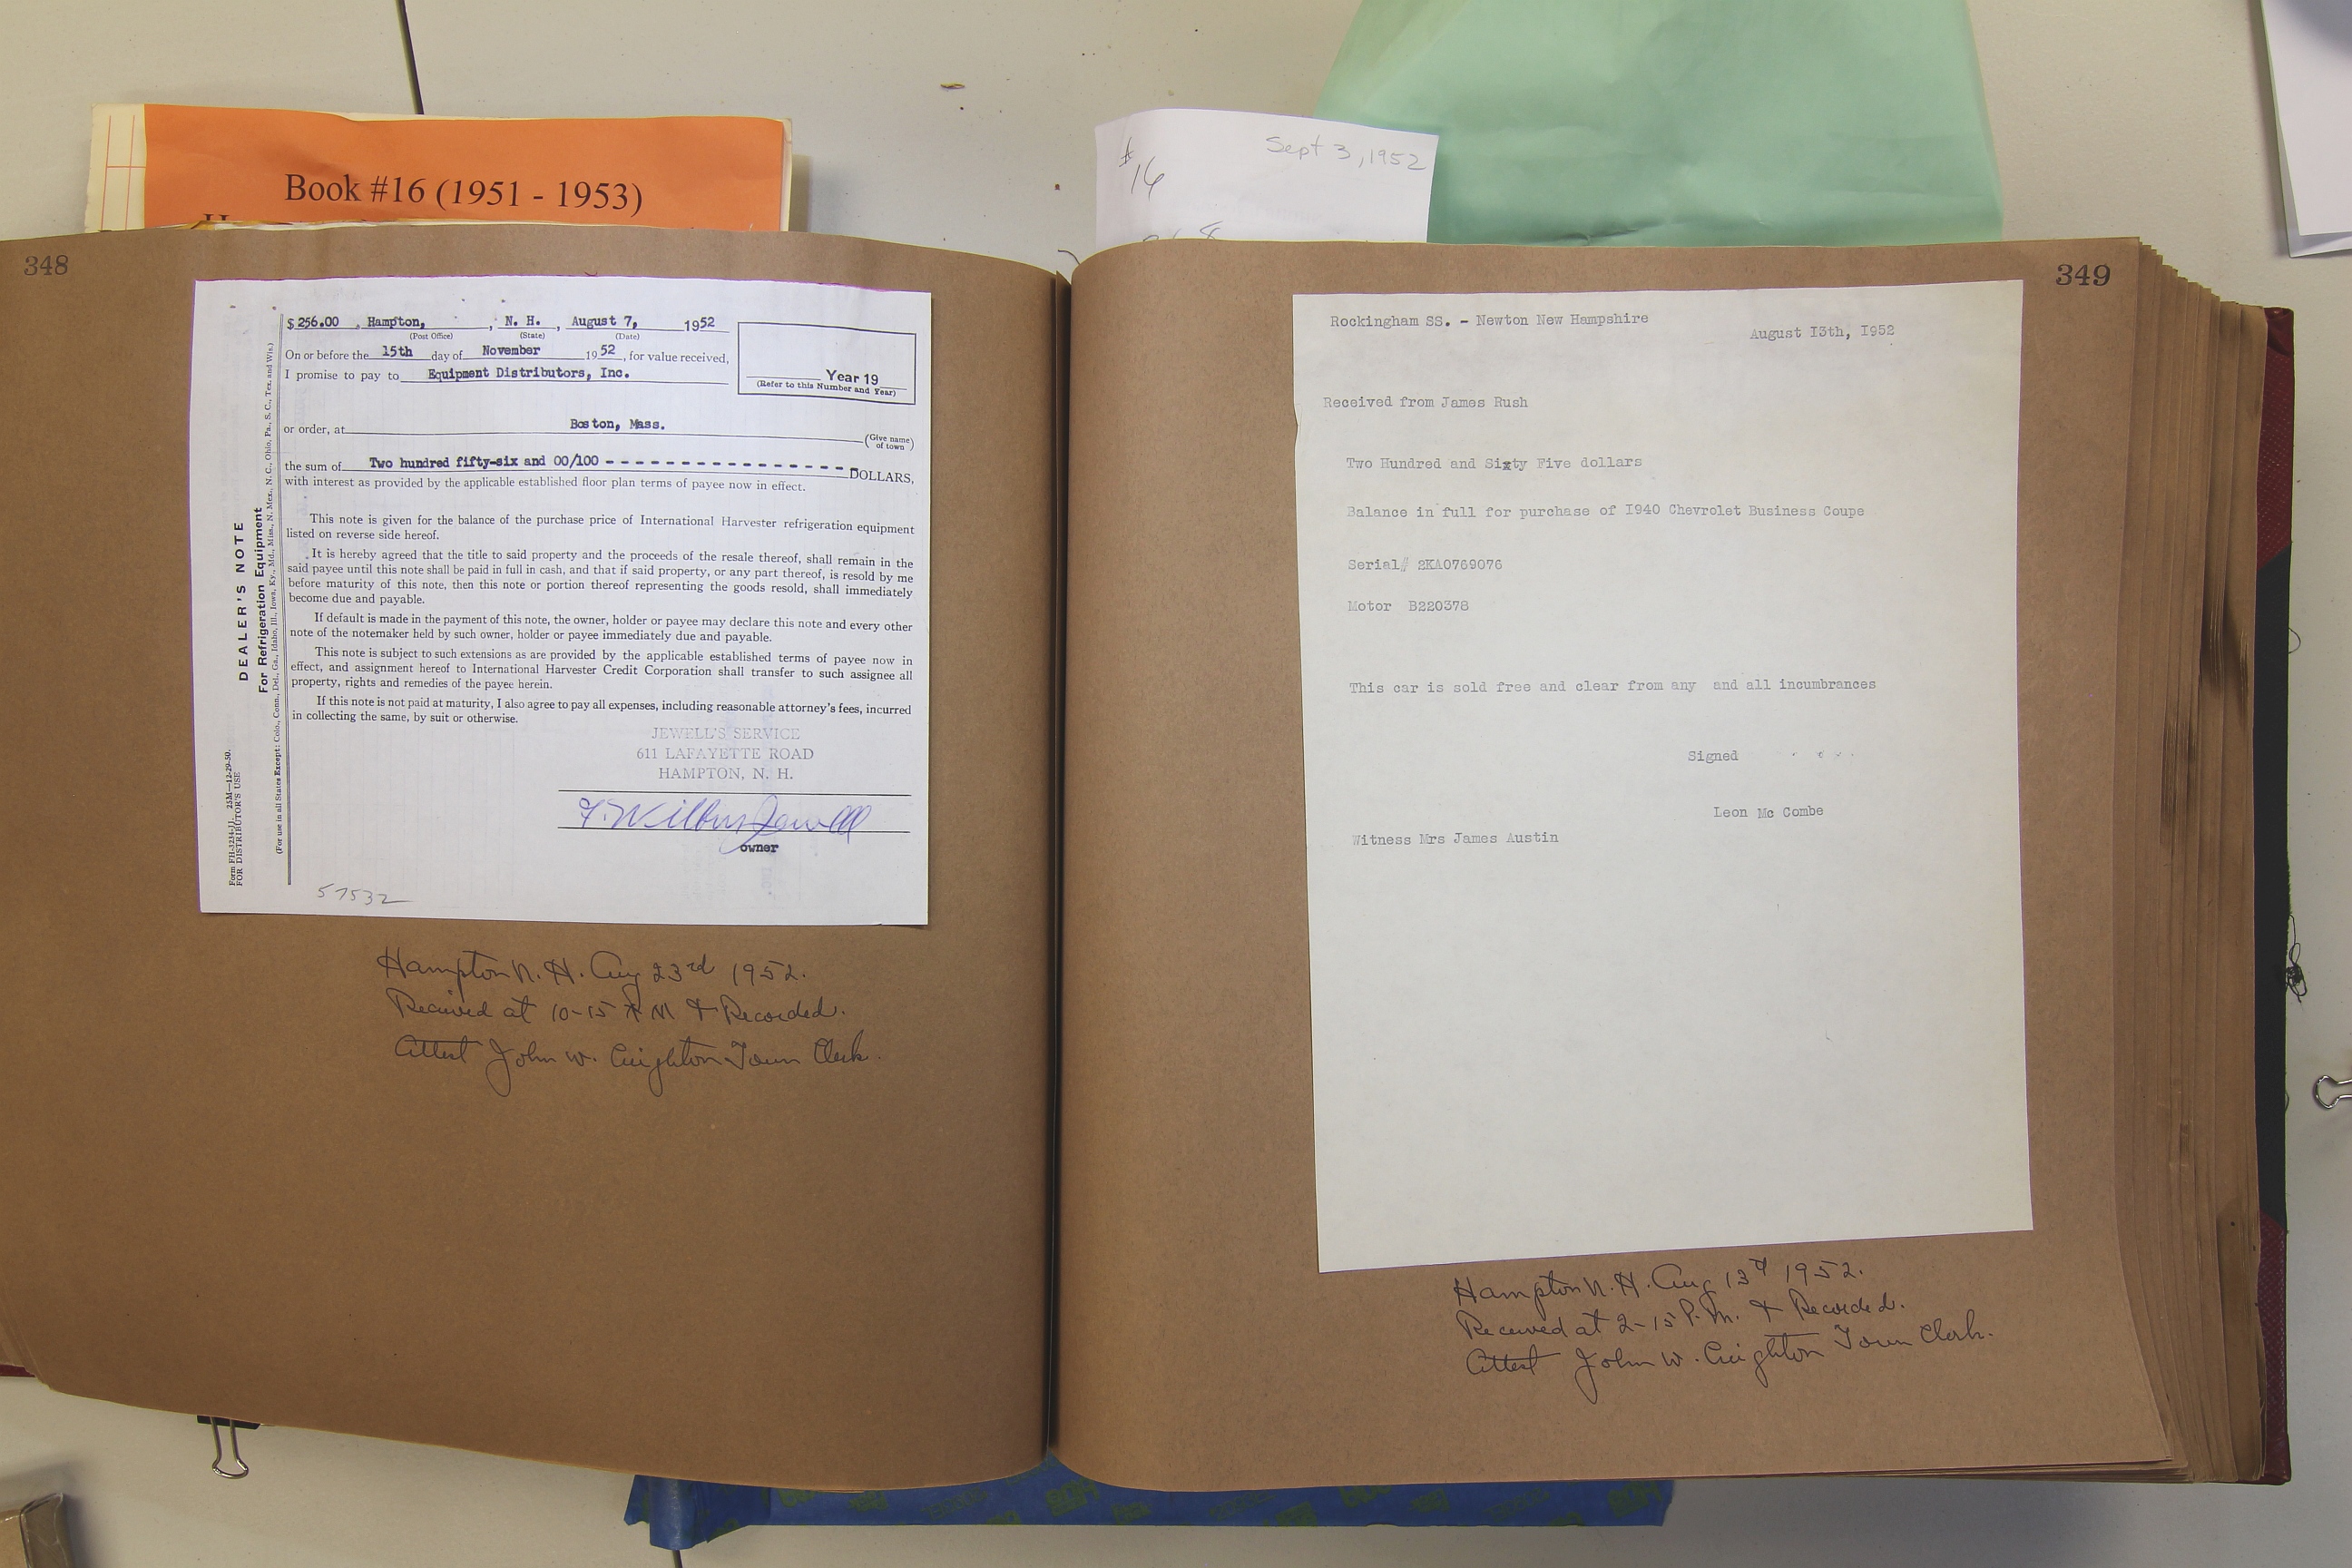 Book #16 (1951 - 1953)
#16
Sept 3, 1952
348
$ 256.00 Hampton, , N. H. , August 7, 1952
(Post Office) (State) (Date)
On or before the 15th day of November 1952, for value received,
I promise to pay to Equipment Distributors, Inc.
Year 19
(Refer to this Number and Year)
or order, at Boston, Mass. (Give name of town)
the sum of Two hundred fifty-six and 00/100 - - - - - - - - - - - - - - - - DOLLARS,
with interest as provided by the applicable established floor plan terms of payee now in effect.
This note is given for the balance of the purchase price of International Harvester refrigeration equipment
listed on reverse side hereof.
It is hereby agreed that the title to said property and the proceeds of the resale thereof, shall remain in the
said payee until this note shall be paid in full in cash, and that if said property, or any part thereof, is resold by me
before maturity of this note, then this note or portion thereof representing the goods resold, shall immediately
become due and payable.
If default is made in the payment of this note, the owner, holder or payee may declare this note and every other
note of the notemaker held by such owner, holder or payee immediately due and payable.
This note is subject to such extensions as are provided by the applicable established terms of payee now in
effect, and assignment hereof to International Harvester Credit Corporation shall transfer to such assignee all
property, rights and remedies of the payee herein.
If this note is not paid at maturity, I also agree to pay all expenses, including reasonable attorney's fees, incurred
in collecting the same, by suit or otherwise.
JEWELL'S SERVICE
611 LAFAYETTE ROAD
HAMPTON, N. H.
F. Wilbur Jewell
owner
57532
DEALER'S NOTE
For Refrigeration Equipment
(For use in all States Except: Colo., Conn., Del., Ga., Idaho, Ill., Iowa, Ky., Md., Miss., N. Mex., N. C., Ohio, Pa., S. C., Tex. and Wis.)
Form FH-3234-J1. 25M—12-29-50.
FOR DISTRIBUTOR'S USE
Hampton N. H. Aug 23rd 1952.
Received at 10-15 A M & Recorded.
Attest John W. Creighton Town Clerk.
349
Rockingham SS. - Newton New Hampshire
August I3th, I952
Received from James Rush
Two Hundred and Sixty Five dollars
Balance in full for purchase of I940 Chevrolet Business Coupe
Serial# 2KA0769076
Motor B220378
This car is sold free and clear from any and all incumbrances
Signed
Leon Mc Combe
Witness Mrs James Austin
Hampton N. H. Aug 13th 1952.
Received at 2-15 P. M. & Recorded.
Attest John W. Creighton Town Clerk.